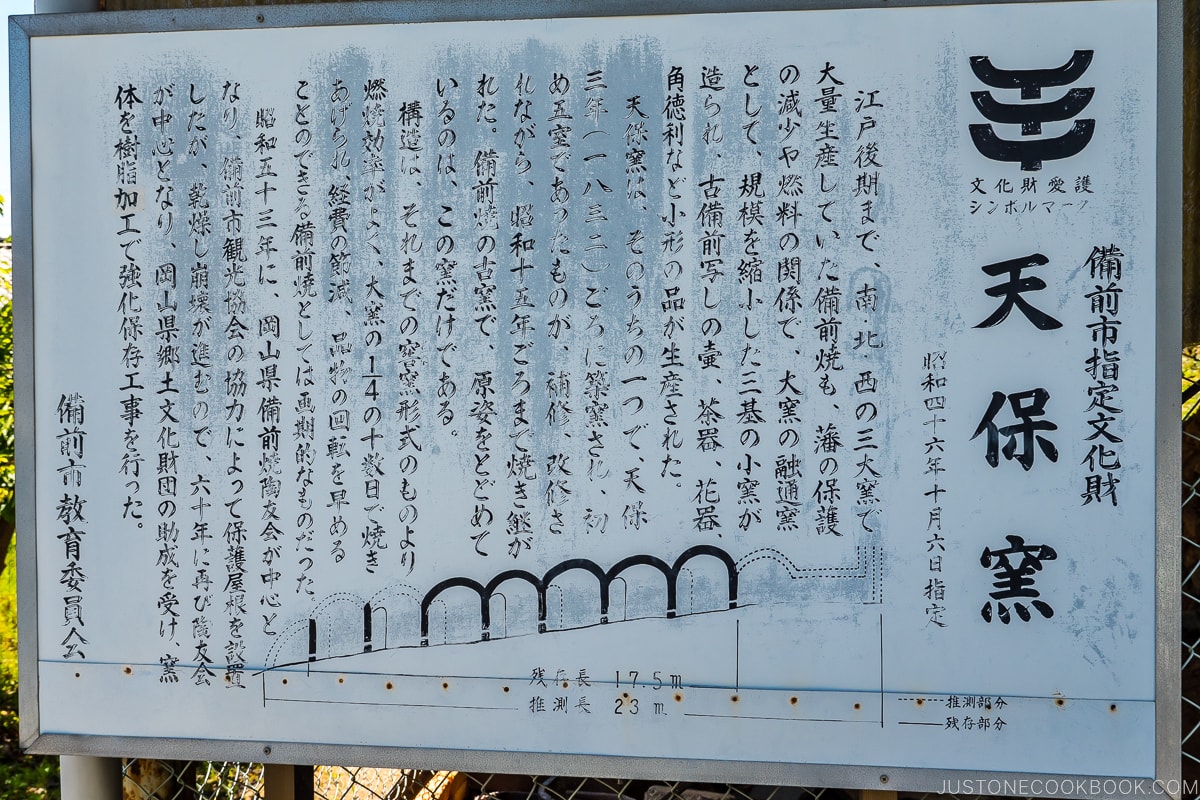 文化財愛護
シンボルマーク
備前市指定文化財
天保窯
昭和四十六年十月六日指定
江戸後期まで、南・北・西の三大窯で
大量生産していた備前焼も、藩の保護
の減少や燃料の関係で、大窯の融通窯
として、規模を縮小した三基の小窯が
造られ、古備前写しの壷、茶器、花器、
角徳利など小形の品が生産された。
天保窯は、そのうちの一つで、天保
三年(一八三二)ごろに築窯され、初
め五室であったものが、補修、改修さ
れながら、昭和十五年ごろまで焼き継が
れた。備前焼の古窯で、原姿をとどめて
いるのは、この窯だけである。
構造は、それまでの窖窯形式のものより
燃焼効率がよく、大窯の1/4の十数日で焼き
あげられ、経費の節減、品物の回転を早める
ことのできる備前焼としては画期的なものだった。
昭和五十三年に、岡山県備前焼陶友会が中心と
なり、備前市観光協会の協力によって保護屋根を設置
したが、乾燥し崩壊が進むので、六十年に再び陶友会
が中心となり、岡山県郷土文化財団の助成を受け、窯
体を樹脂加工で強化保存工事を行った。
備前市教育委員会
残存長 17.5m
推測長 23m
推測部分
残存部分
JUSTONECOOKBOOK.COM